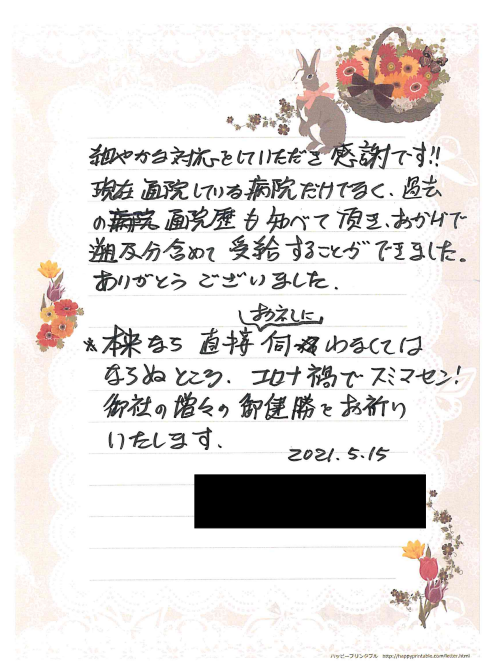 細やかな対応をしていただき感謝です!!
現在通院している病院だけでなく、過去
の病院通院歴も知べて頂き、おかげで
遡及分含めて受給することができました。
ありがとうございました.
お礼に
※本来なら直接伺わなくては
ならぬところ、コロナ禍でスミマセン!
御社の増々の御健勝をお祈り
いたします.
2021.5.15
ハッピープリンタブル http://happyprintable.com/letter.html